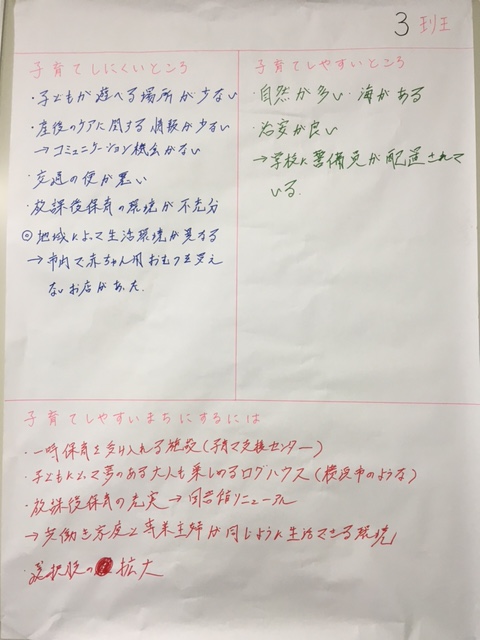 3班
子育てしにくいところ
・子どもが遊べる場所が少ない
・産後のケアに関する情報が少ない
→コミュニケーション機会がない
・交通の便が悪い
・放課後保育の環境が不充分
◎地域によって生活環境が異なる
→市内で赤ちゃん用おむつを買え
ないお店があった.
子育てしやすいところ
・自然が多い・海がある
・治安が良い
→学校に警備員が配置されて
いる.
子育てしやすいまちにするには
・一時保育を受け入れる施設(子育て支援センター)
・子どもにとって夢のある大人も楽しめるログハウス(横浜市のような)
・放課後保育の充実→図書館リニューアル
→共働き家庭と専業主婦が同じように生活できる環境
・選択肢の拡大